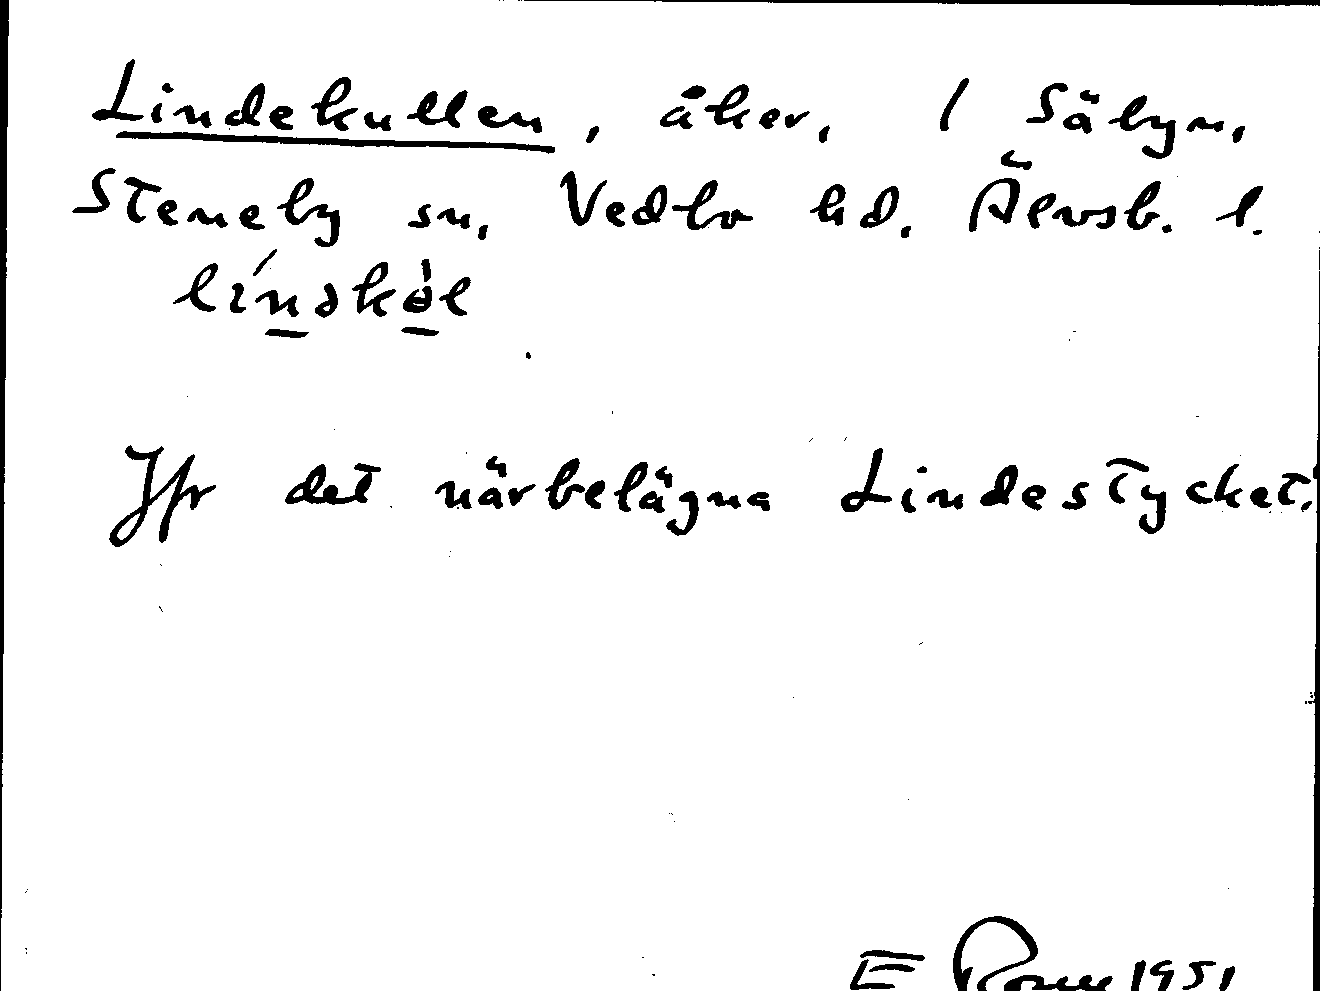 Lindekullen, åker, 1 Säbyn,
Steneby sn, Vedbo hd. Älvsb. l.
Jfr det närbelägna Lindestycket.
E 1951